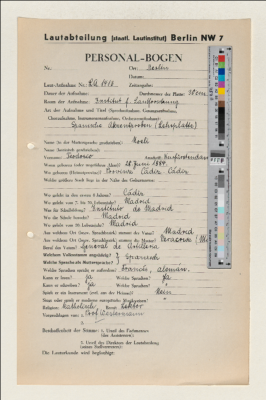 Lautabteilung (staatl. Lautinstitut) Berlin NW 7
PERSONAL-BOGEN
Nr. Ort: Berlin
Datum:
Laut-Aufnahme Nr. LA 1413 Zeitangabe:
Dauer der Aufnahme: Durchmesser der Platte: 30 cm
Raum der Aufnahme: Institut f. Lautforschung
Art der Aufnahme und Titel (Sprechaufnahme, Gesangsaufnahme,
Choraufnahme, Instrumentenaufnahme, Orchesteraufnahme):
Spanische
Name (in der Muttersprache geschrieben):
Name (lateinisch geschrieben):
Vorname: Teodorico
Wann geboren (oder ungefähres Alter)? 28 Junio 1884
Wo geboren (Heimatprovinz)? Provinz Cádiz Cádiz
Welche größere Stadt liegt in der Nähe des Geburtsortes
Wo gelebt in den ersten 6 Jahren? Cádiz
Wo gelebt vom 7. bis 20. Lebensjahr? Madrid
Was für Schulbildung? de Madrid
Wo die Schule besucht? Madrid
Wo gelebt vom 20. Lebensjahr? Madrid
Aus welchem Ort (resp. Sprachbezirk) stammt der Vater? Madrid
Aus welchem Ort (resp. Sprachbezirk) stammt die Mutter?
Beruf des Vaters? General de
Welchem Volksstamm angehörig?
Welche Sprache als Muttersprache? } Spanisch
Welche Sprachen spricht er außerdem? francés, alemán.
Kann er lesen? Ja Welche Sprachen? Ja
Kann er schreiben? Ja Welche Sprachen? Ja
Spielt er ein Instrument (evtl. aus der Heimat)? Nein
Singt oder spielt er moderne europäische Musikweisen?
Religion: Katholisch Beruf: Lektor
Vorgeschlagen von: 1. Prof. Westermann
2.
Beschaffenheit der Stimme: 1. Urteil des Fachmannes
(des Assistenten):
2. Urteil des Direktors der Lautabteilung
(seines Stellvertreters):
Die Lauturkunde wird beglaubigt: